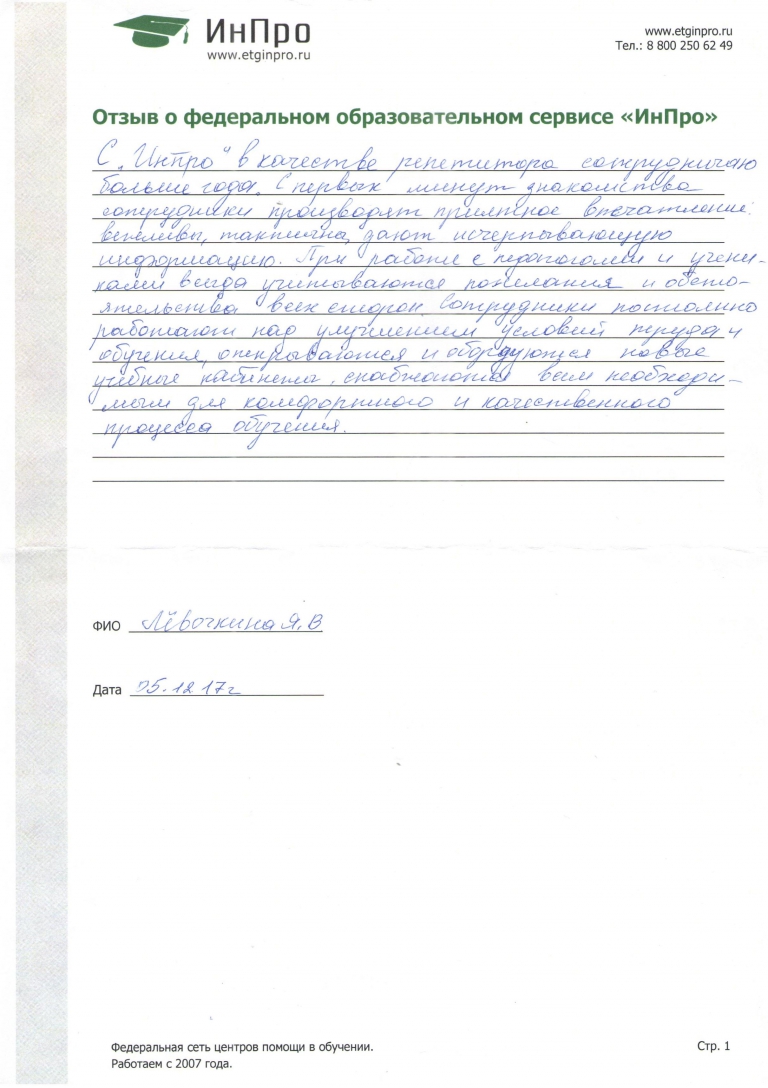 ИнПро
www.etginpro.ru
www.etginpro.ru
Тел.: 8 800 250 62 49
Отзыв о федеральном образовательном сервисе «ИнПро»
С „Инпро" в качестве репетитора сотрудничаю
больше года. С первых минут знакомства
сотрудники производят приятное впечатление:
вежливы, тактична, дают исчерпывающую
информацию. При работе с педагогами и учени-
ками всегда учитываются пожелания и обсто-
ятельства всех сторон. Сотрудники постоянно
работают над улучшением условий труда и
обучения, открываются и оборудуются новые
учебные кабинеты, снабжаются всем необходи-
мым для комфортного и качественного
процесса обучения.
ФИО Лёвочкина Я. В
Дата 05.12.17г
Федеральная сеть центров помощи в обучении.
Работаем с 2007 года.
Стр. 1